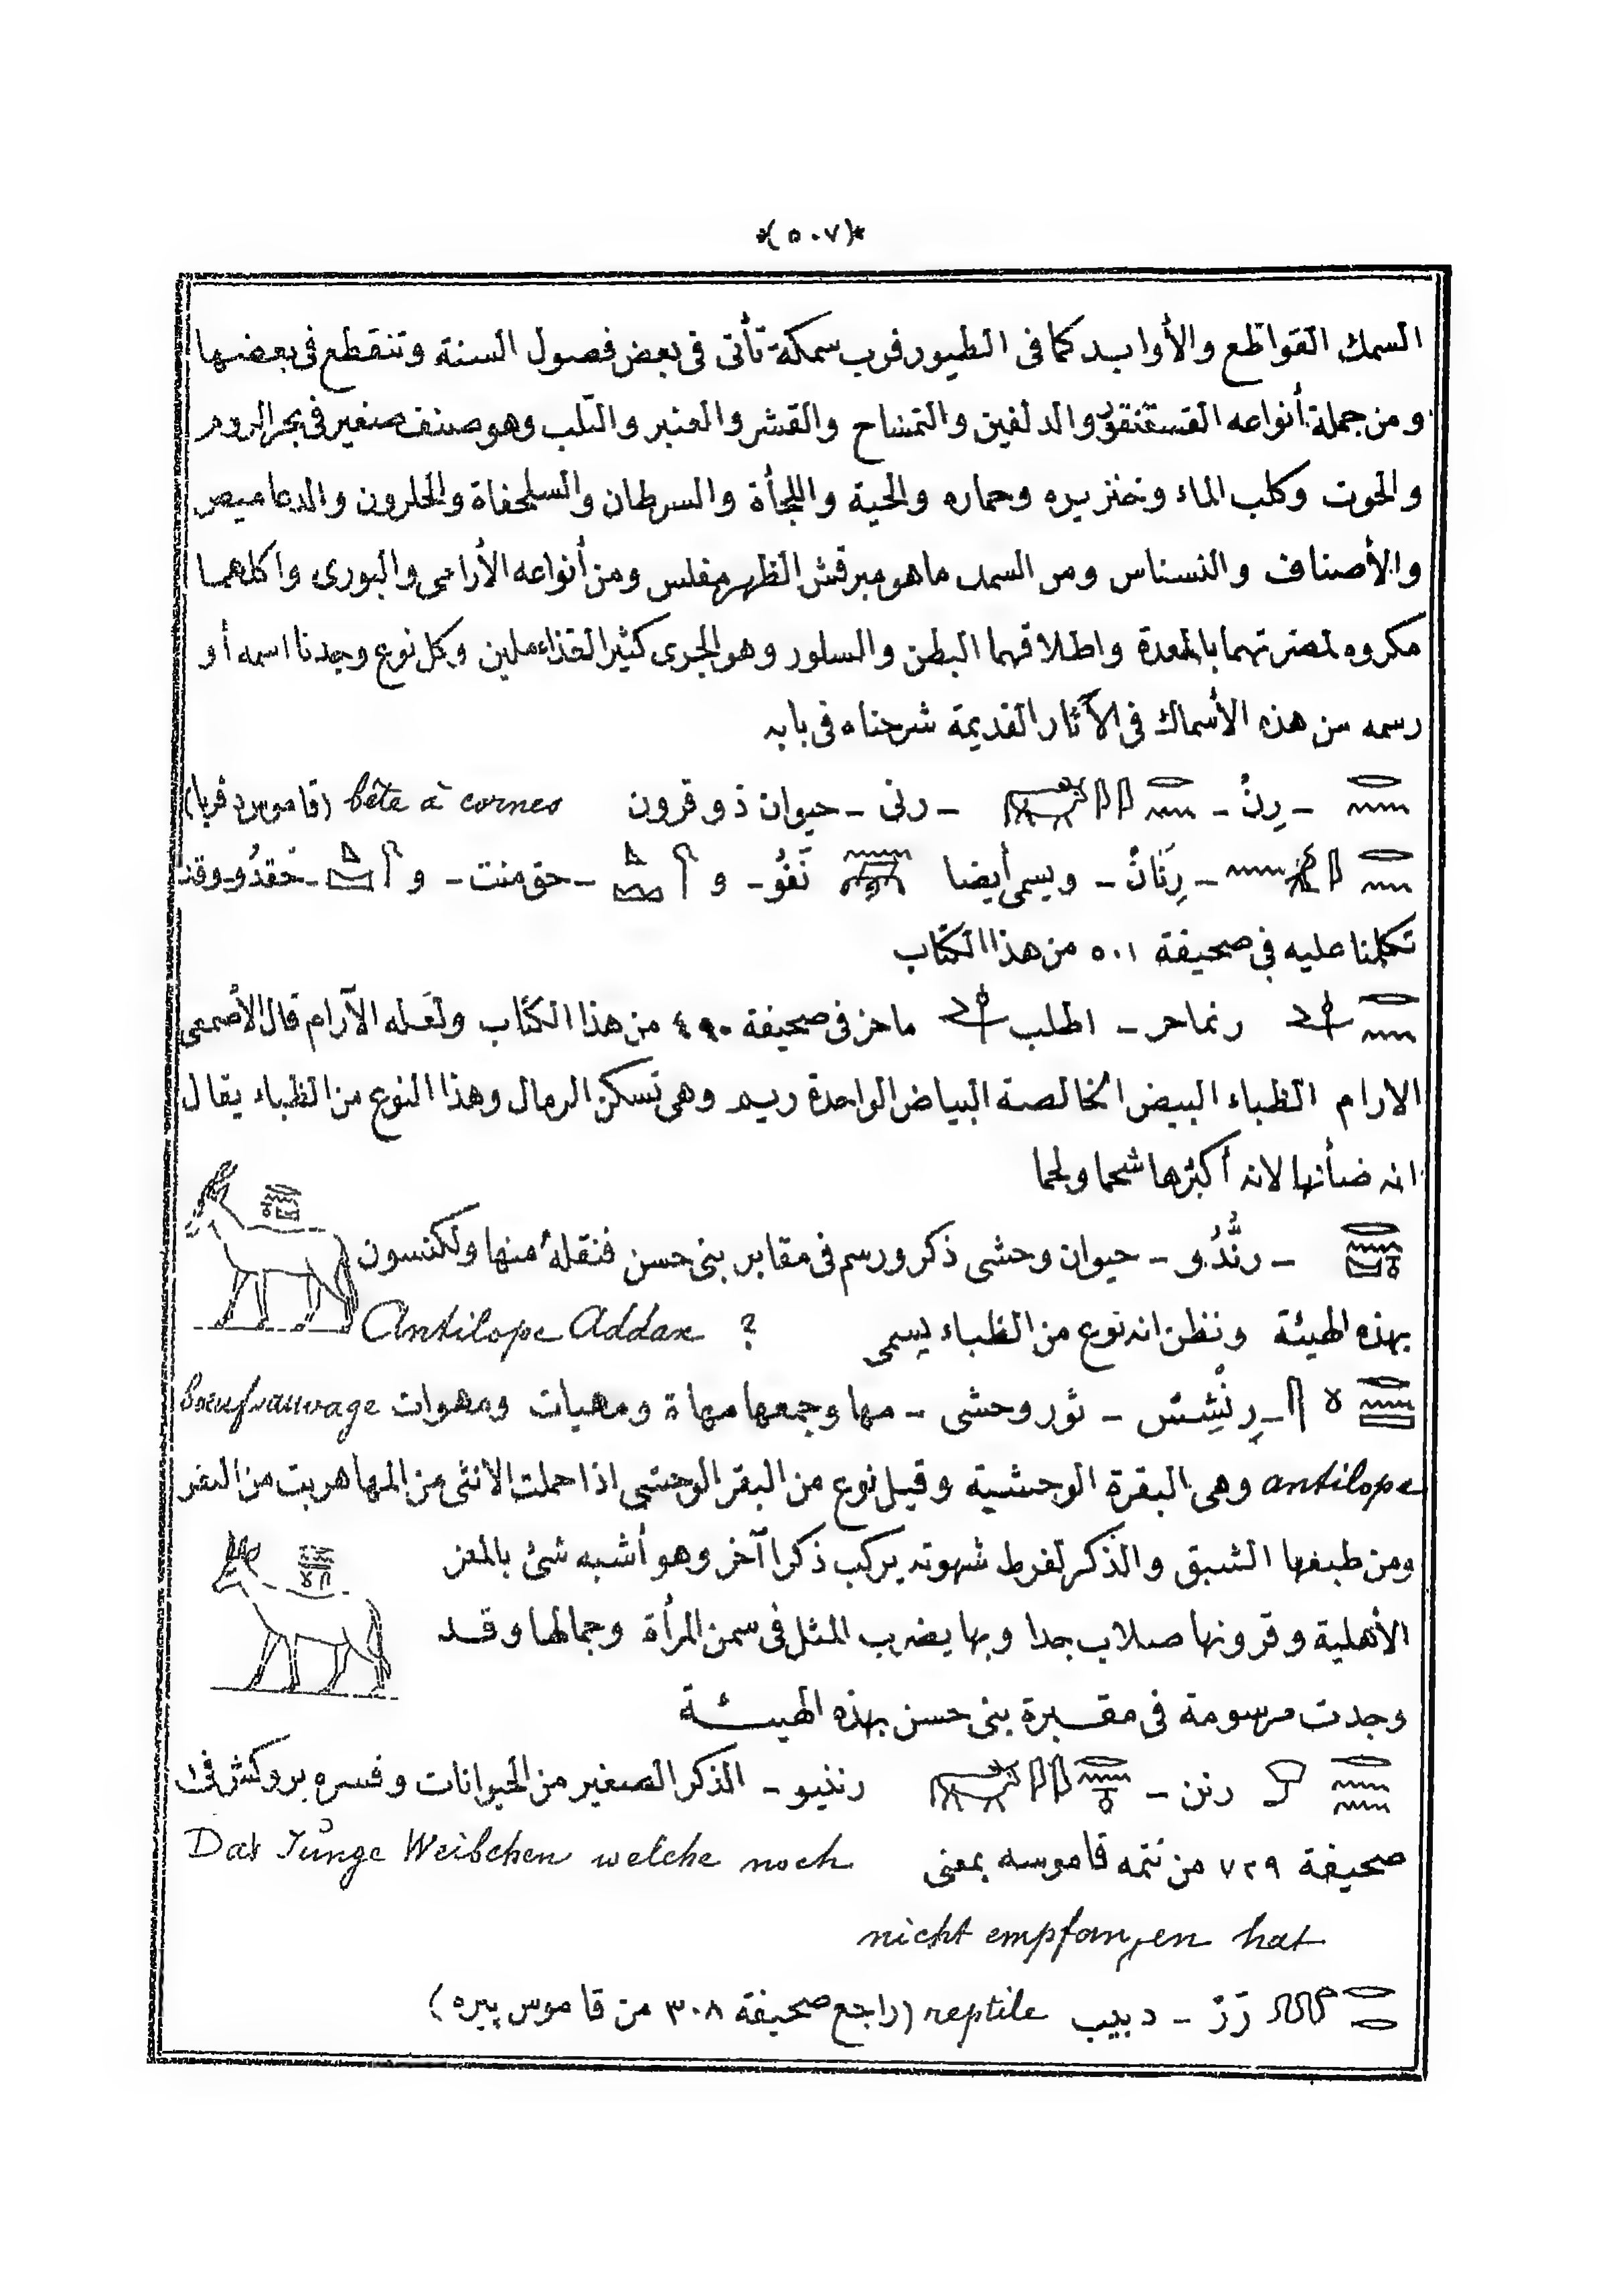 *(٥٠٧)*
السمك القواطع والأوابد كما فى الطيور فرب سمكة تأتى فى بعض فصول السنة وتنقطع فى بعضها
ومن جملة أنواعه القسقنقور والدلفين والتمساح والقشر والعنبر والتلب وهو صنف صغير فى بحر الروم
والحوت وكلب الماء وخنزيره وحماره والحية واللجأة والسرطان والسلحفاة والحلزون والدعاميص
والأصناف والنسناس ومن السمك ما هو مبرقش الظهر مفلس ومن أنواعه الأرامى والبورى واكلهما
مكروه لمضرتهما بالمعدة واطلاقهما البطن والسلور وهو الجرى كثير الغذاء ملين وكل نوع وجدنا اسمه أو
رسمه من هذه الأسماك فى الآثار القديمة شرحناه فى بابه
– رِنْ – – رنى – حيوان ذو قرون bête à cornes (قاموس
– رِنَانْ – ويسمى أيضا نَفَوُ – و – حق منت – و – حَقدُو وقد
تكلمنا عليه فى صحيفة ٥٠١ من هذا الكتاب
رنماحز – اطلب ماحز فى صحيفة ٤٩٠ من هذا الكتاب ولعله الآرام قال الأصمعى
الارام الظباء البيض الخالصة البياض الواحدة ريم وهى تسكن الرمال وهذا النوع من الظباء يقال
انه ضأنها لانه أكثرها شحما ولحما
– رنُّدُو – حيوان وحشى ذكر ورسم فى مقابر بنى حسن فنقله منها ولكنسون
بهذه الهيئة ونظن انه نوع من الظباء يسمى ? Antilope Addax
– رِنْشِسْ – ثور وحشى – مها وجمعها مهاة ومهيات ومهوات bœuf sauvage
antilope وهى البقرة الوحشية وقيل نوع من البقر الوحشى اذا حملت الانثى من المها هربت من البقر
ومن طبعها الشبق والذكر لفرط شهوته يركب ذكرا آخر وهو أشبه شئ بالمعز
الأهلية وقرونها صلاب جدا وبها يضرب المثل فى سمن المرأة وجمالها وقد
وجدت مرسومة فى مقبرة بنى حسن بهذه الهيئة
رنن – رننيو – الذكر الصغير من الحيوانات وفسره بروكش فى
صحيفة ٧٢٩ من تتمه قاموسه بمعنى Das Junge Weibchen welche noch
nicht empfangen hat
رَرْ – دبيب reptile (راجع صحيفة ٣٠٨ من قاموس پيره)